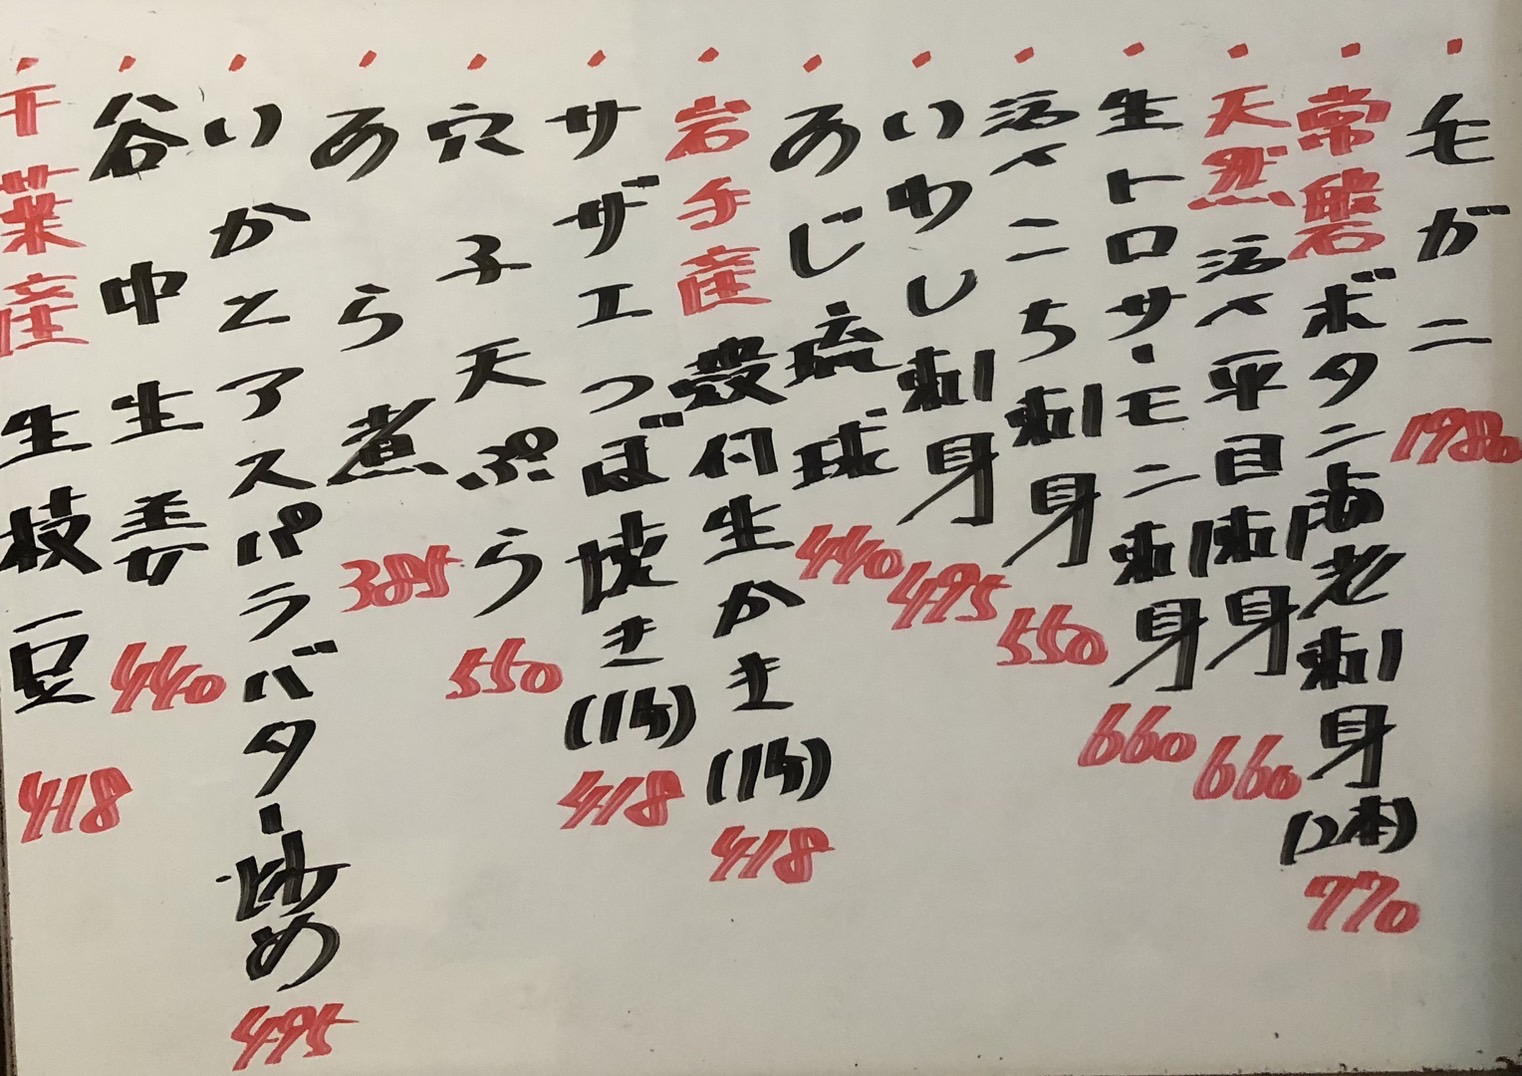 ・毛ガニ 1980
・常磐ボタン海老刺身(2本) 770
・天然活〆平目刺身 660
・生トロサーモン刺身 660
・活〆こち刺身 550
・いわし刺身 495
・あじ琉球 440
・岩手産殻付生かき(1ケ) 418
・サザエつぼ焼き(1ケ) 418
・穴子天ぷら 550
・あら煮 385
・いかとアスパラバター炒め 495
・谷中生姜 440
・千葉産生枝豆 418